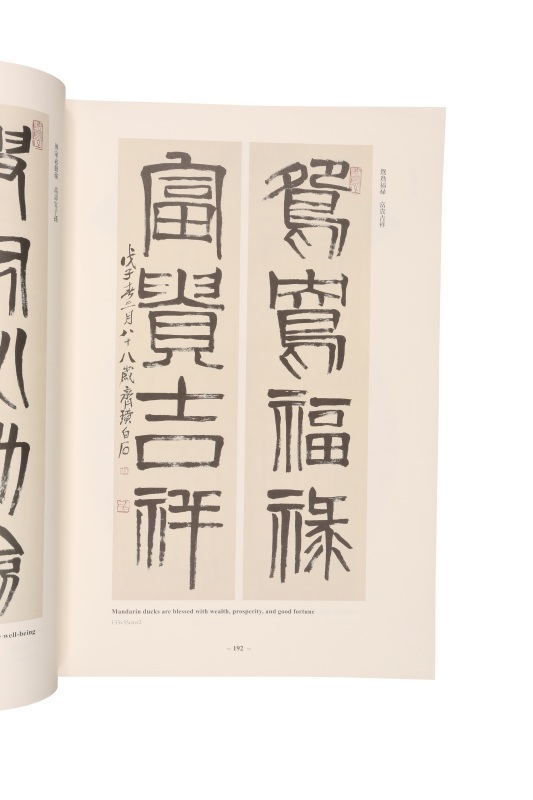 鴛鴦福祿　富貴吉祥
鴛鴦福祿
富貴吉祥
戊子春二月八十八歲齊璜白石
Mandarin ducks are blessed with wealth, prosperity, and good fortune
– 192 –
well-being